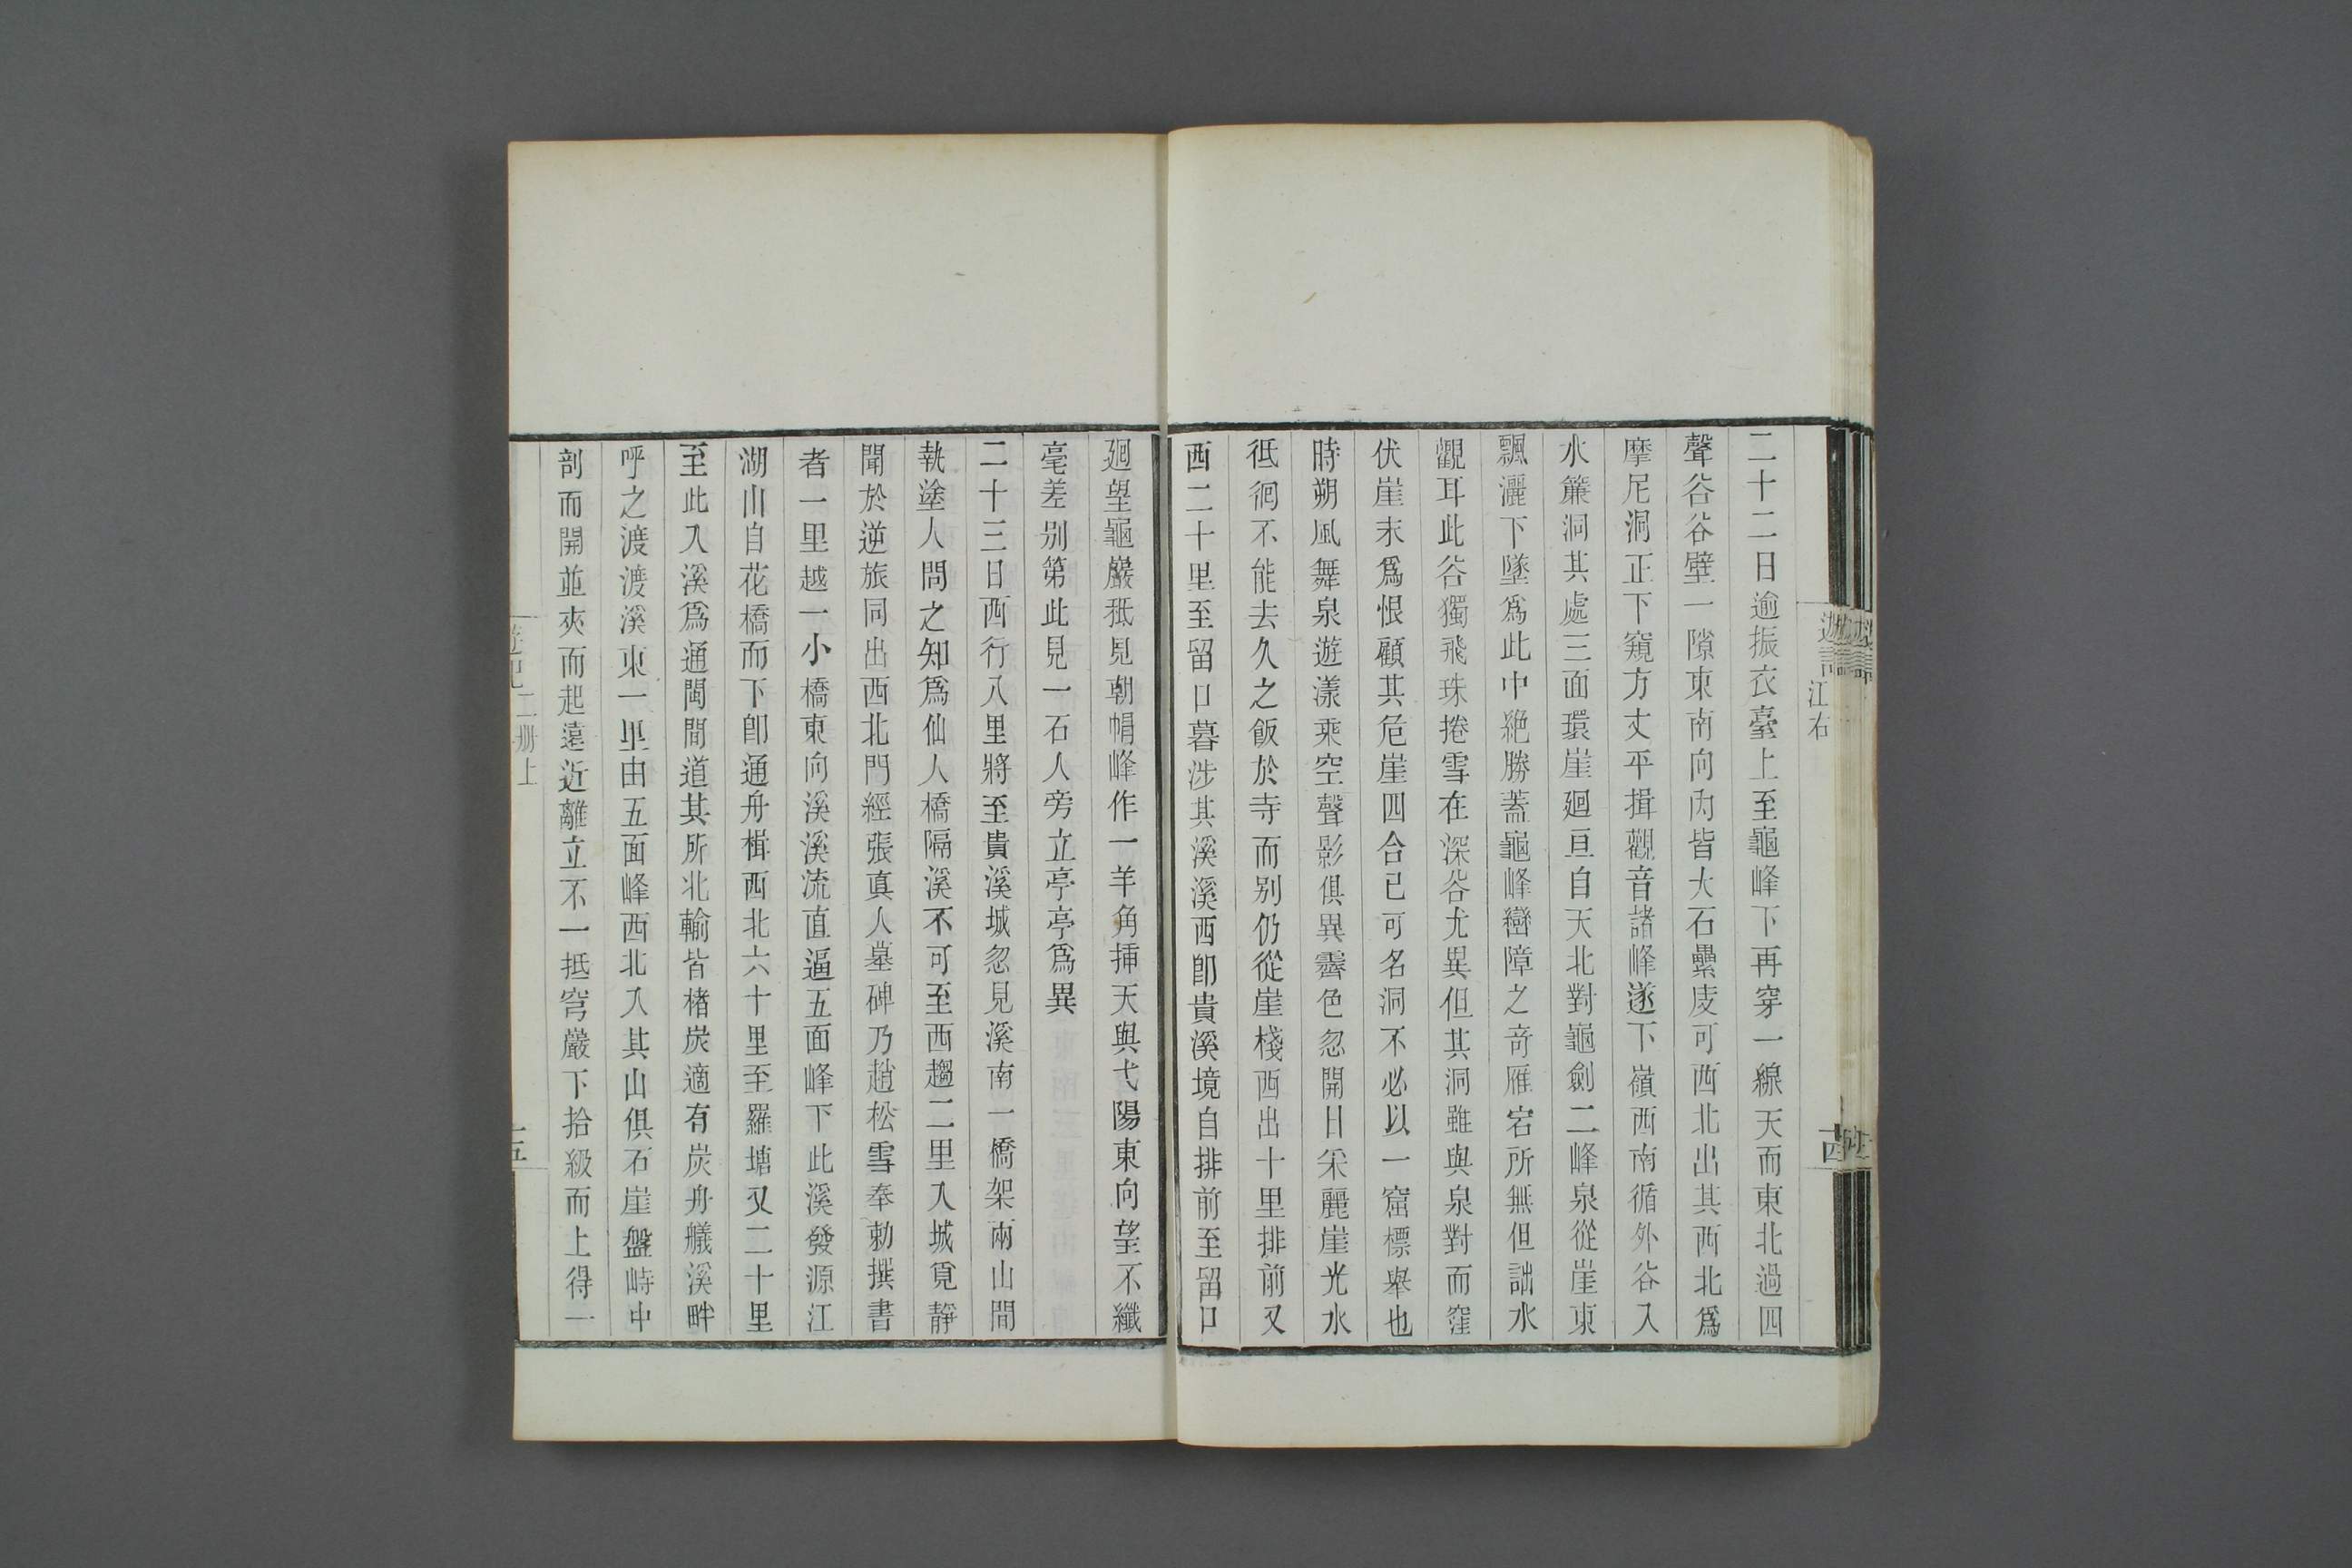 江右
二十二日逾振衣臺上至龜峰下再穿一線天而東北過四
聲谷谷壁一隙東南向内皆大石纍庋可西北出其西北爲
摩尼洞正下窺方丈平揖觀音諸峰遂下嶺西南循外谷入
水簾洞其處三面環崖廻亘自天北對龜劍二峰泉從崖東
飄灑下墜爲此中絶勝葢龜峰巒障之竒雁宕所無但詘水
觀耳此谷獨飛珠捲雪在深谷尤異但其洞雖與泉對而窪
伏崖末爲恨顧其危崖四合已可名洞不必以一窟標舉也
時朔風舞泉遊漾乘空聲影俱異霽色忽開日采麗崖光水
徘徊不能去久之飯於寺而别仍從崖棧西出十里排前又
西二十里至留口暮涉其溪溪西卽貴溪境自排前至留口
廻望龜巖秪見朝帽峰作一羊角揷天與弋陽東向望不纖
毫差别第此見一石人旁立亭亭爲異
二十三日西行八里將至貴溪城忽見溪南一橋架兩山間
執塗人問之知爲仙人橋隔溪不可至西趨二里入城覓靜
聞於逆旅同出西北門經張眞人墓碑乃趙松雪奉勅撰書
者一里越一小橋東向溪溪流直逼五面峰下此溪發源江
湖山自花橋而下卽通舟楫西北六十里至羅塘又二十里
至此入溪爲通閩間道其所北輸皆楮炭適有炭舟艤溪畔
呼之渡渡溪東一里由五面峰西北入其山俱石崖盤峙中
剖而開並夾而起遠近離立不一抵穹巖下拾級而上得一
二册上